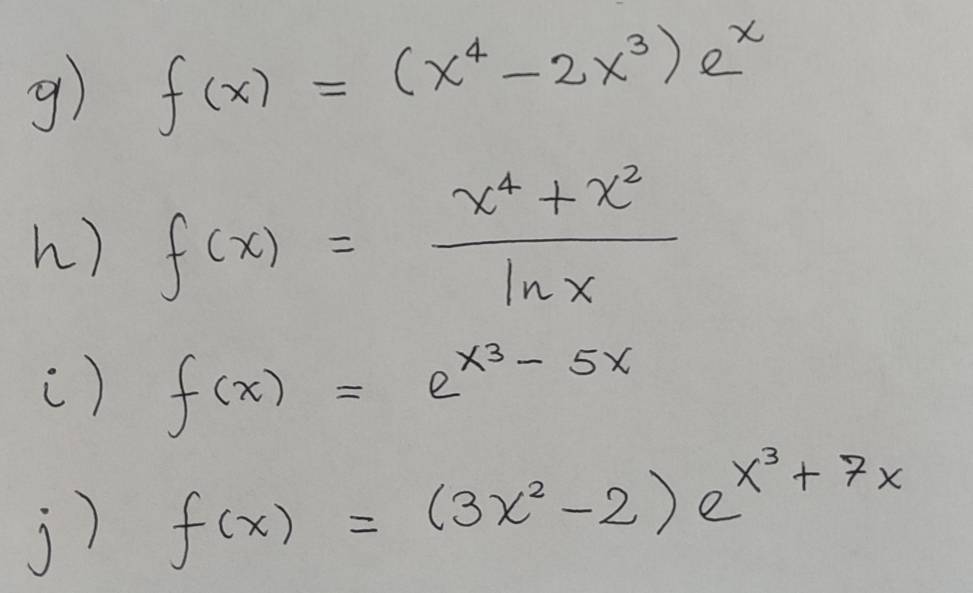 g) f(x) = (x⁴ - 2x³) eˣ
h) f(x) = \frac{x⁴ + x²}{ln x}
i) f(x) = e^{x³ - 5x}
j) f(x) = (3x² - 2) e^{x³ + 7x}